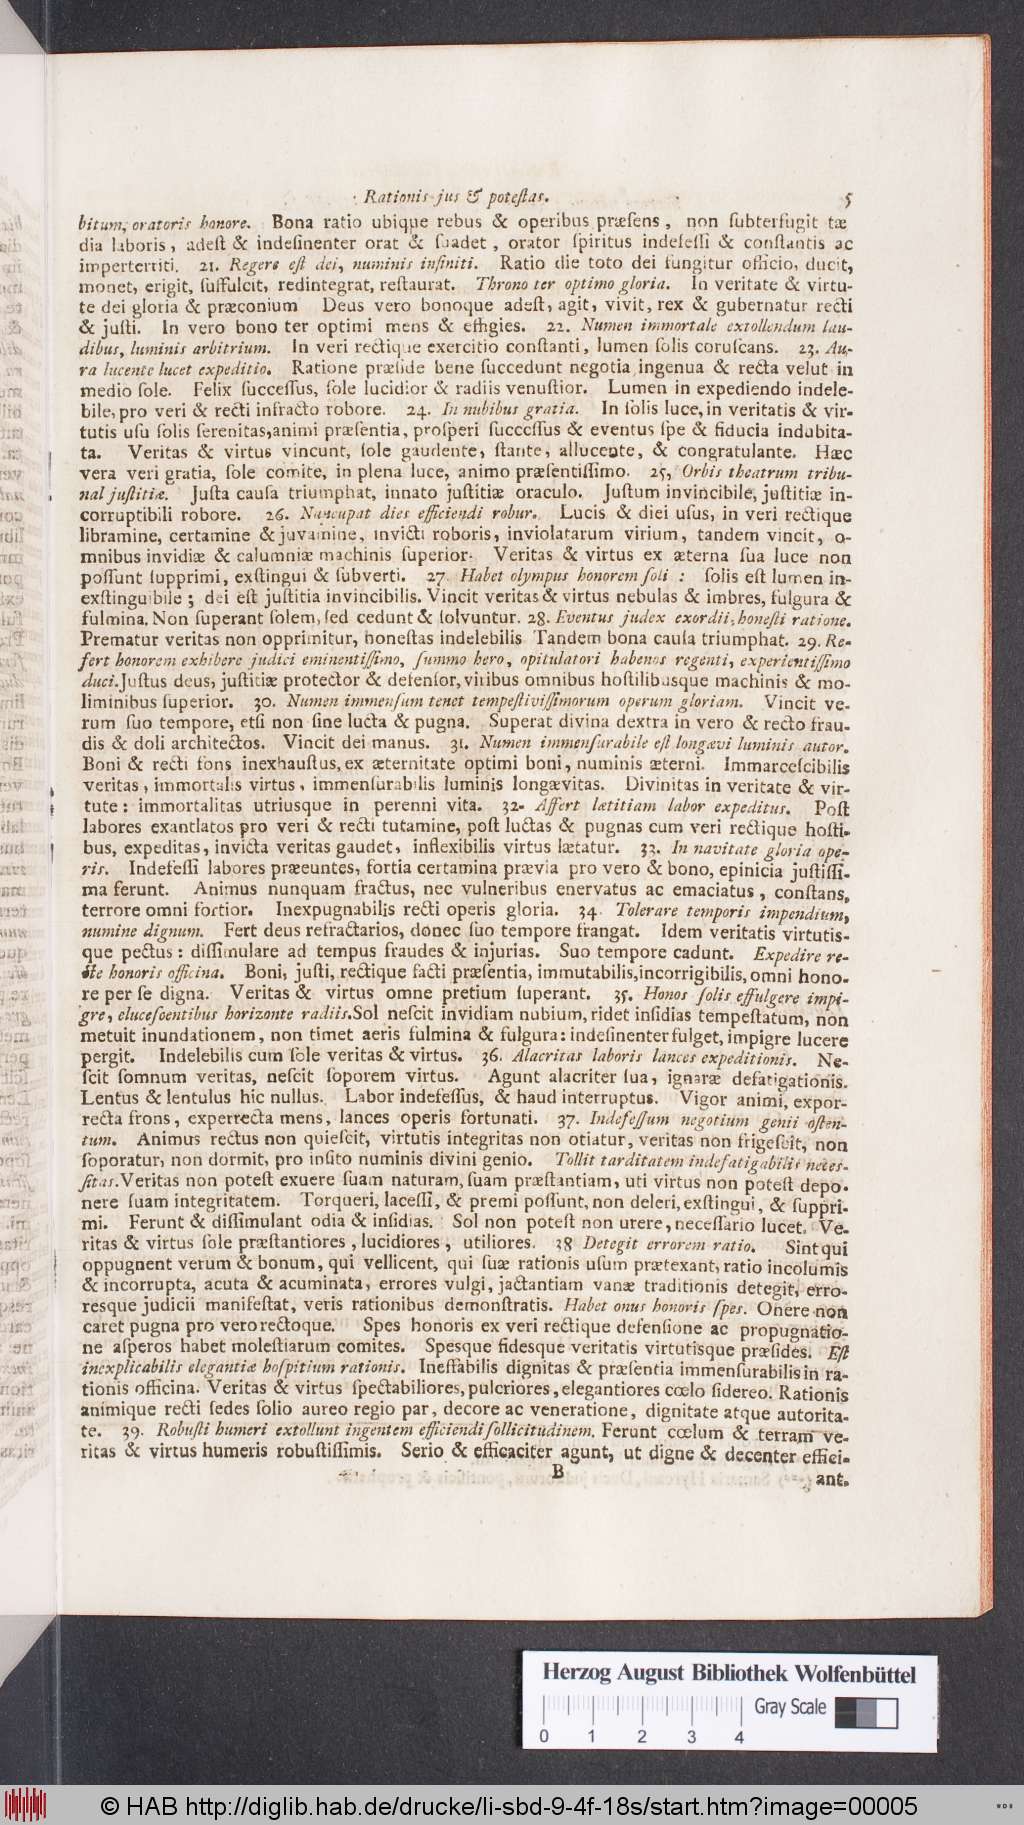 Rationis jus & poteſtas. 5
bitum, oratoris honore. Bona ratio ubique rebus & operibus præſens, non ſubterfugit tæ
dia laboris, adeſt & indeſinenter orat & ſuadet, orator ſpiritus indefeſſi & conſtantis ac
imperterriti. 21. Regere eſt dei, numinis infiniti. Ratio die toto dei fungitur officio, ducit,
monet, erigit, ſuffulcit, redintegrat, reſtaurat. Throno ter optimo gloria. In veritate & virtu-
te dei gloria & præconium Deus vero bonoque adeſt, agit, vivit, rex & gubernatur recti
& juſti. In vero bono ter optimi mens & effigies. 22. Numen immortale extollendum lau-
dibus, luminis arbitrium. In veri rectique exercitio conſtanti, lumen ſolis coruſcans. 23. Au-
ra lucente lucet expeditio. Ratione præſide bene ſuccedunt negotia ingenua & recta velut in
medio ſole. Felix ſucceſſus, ſole lucidior & radiis venuſtior. Lumen in expediendo indele-
bile, pro veri & recti infracto robore. 24. In nubibus gratia. In ſolis luce, in veritatis & vir-
tutis uſu ſolis ſerenitas, animi præſentia, proſperi ſucceſſus & eventus ſpe & fiducia indubita-
ta. Veritas & virtus vincunt, ſole gaudente, ſtante, allucente, & congratulante. Hæc
vera veri gratia, ſole comite, in plena luce, animo præſentiſſimo. 25, Orbis theatrum tribu-
nal juſtitiæ. Juſta cauſa triumphat, innato juſtitiæ oraculo. Juſtum invincibile, juſtitiæ in-
corruptibili robore. 26. Nuncupat dies efficiendi robur. Lucis & diei uſus, in veri rectique
libramine, certamine & juvamine, invicti roboris, inviolatarum virium, tandem vincit, o-
mnibus invidiæ & calumniæ machinis ſuperior. Veritas & virtus ex æterna ſua luce non
poſſunt ſupprimi, exſtingui & ſubverti. 27. Habet olympus honorem ſoli : ſolis eſt lumen in-
exſtinguibile ; dei eſt juſtitia invincibilis. Vincit veritas & virtus nebulas & imbres, fulgura &
fulmina. Non ſuperant ſolem, ſed cedunt & ſolvuntur. 28. Eventus judex exordii, honeſti ratione.
Prematur veritas non opprimitur, honeſtas indelebilis Tandem bona cauſa triumphat. 29. Re-
fert honorem exhibere judici eminentiſſimo, ſummo hero, opitulatori habenas regenti, experientiſſimo
duci. Juſtus deus, juſtitiæ protector & defenſor, viribus omnibus hoſtilibusque machinis & mo-
liminibus ſuperior. 30. Numen immenſum tenet tempeſtiviſſimorum operum gloriam. Vincit ve-
rum ſuo tempore, etſi non ſine lucta & pugna. Superat divina dextra in vero & recto frau-
dis & doli architectos. Vincit dei manus. 31. Numen immenſurabile eſt longævi luminis autor.
Boni & recti fons inexhauſtus, ex æternitate optimi boni, numinis æterni. Immarceſcibilis
veritas, immortalis virtus, immenſurabilis luminis longævitas. Divinitas in veritate & vir-
tute : immortalitas utriusque in perenni vita. 32. Affert lætitiam labor expeditus. Poſt
labores exantlatos pro veri & recti tutamine, poſt luctas & pugnas cum veri rectique hoſti-
bus, expeditas, invicta veritas gaudet, inflexibilis virtus lætatur. 33. In navitate gloria ope-
ris. Indefeſſi labores præeuntes, fortia certamina prævia pro vero & bono, epinicia juſtiſſi-
ma ferunt. Animus nunquam fractus, nec vulneribus enervatus ac emaciatus, conſtans,
terrore omni fortior. Inexpugnabilis recti operis gloria. 34. Tolerare temporis impendium,
numine dignum. Fert deus refractarios, donec ſuo tempore frangat. Idem veritatis virtutis-
que pectus : diſſimulare ad tempus fraudes & injurias. Suo tempore cadunt. Expedire re-
cte honoris officina. Boni, juſti, rectique facti præſentia, immutabilis, incorrigibilis, omni hono-
re per ſe digna. Veritas & virtus omne pretium ſuperant. 35. Honos ſolis effulgere impi-
gre, eluceſcentibus horizonte radiis. Sol neſcit invidiam nubium, ridet inſidias tempeſtatum, non
metuit inundationem, non timet aeris fulmina & fulgura: indeſinenter fulget, impigre lucere
pergit. Indelebilis cum ſole veritas & virtus. 36. Alacritas laboris lances expeditionis. Ne-
ſcit ſomnum veritas, neſcit ſoporem virtus. Agunt alacriter ſua, ignaræ defatigationis.
Lentus & lentulus hic nullus. Labor indefeſſus, & haud interruptus. Vigor animi, expor-
recta frons, experrecta mens, lances operis fortunati. 37. Indefeſſum negotium genii oſten-
tum. Animus rectus non quieſcit, virtutis integritas non otiatur, veritas non frigeſcit, non
ſoporatur, non dormit, pro inſito numinis divini genio. Tollit tarditatem indefatigabilis neceſ-
ſitas. Veritas non poteſt exuere ſuam naturam, ſuam præſtantiam, uti virtus non poteſt depo-
nere ſuam integritatem. Torqueri, laceſſi, & premi poſſunt, non deleri, exſtingui, & ſuppri-
mi. Ferunt & diſſimulant odia & inſidias. Sol non poteſt non urere, neceſſario lucet. Ve-
ritas & virtus ſole præſtantiores, lucidiores, utiliores. 38 Detegit errorem ratio. Sint qui
oppugnent verum & bonum, qui vellicent, qui ſuæ rationis uſum prætexant, ratio incolumis
& incorrupta, acuta & acuminata, errores vulgi, jactantiam vanæ traditionis detegit, erro-
resque judicii manifeſtat, veris rationibus demonſtratis. Habet onus honoris ſpes. Onere non
caret pugna pro vero rectoque. Spes honoris ex veri rectique defenſione ac propugnatio-
ne aſperos habet moleſtiarum comites. Spesque fidesque veritatis virtutisque præſides. Eſt
inexplicabilis elegantiæ hoſpitium rationis. Ineffabilis dignitas & præſentia immenſurabilis in ra-
tionis officina. Veritas & virtus ſpectabiliores, pulcriores, elegantiores cœlo ſidereo. Rationis
animique recti ſedes ſolio aureo regio par, decore ac veneratione, dignitate atque autorita-
te. 39. Robuſti humeri extollunt ingentem efficiendi ſollicitudinem. Ferunt cœlum & terram ve-
ritas & virtus humeris robuſtiſſimis. Serio & efficaciter agunt, ut digne & decenter effici-
B
ant.
Herzog August Bibliothek Wolfenbüttel
Gray Scale
0 1 2 3 4
© HAB http://diglib.hab.de/drucke/li-sbd-9-4f-18s/start.htm?image=00005